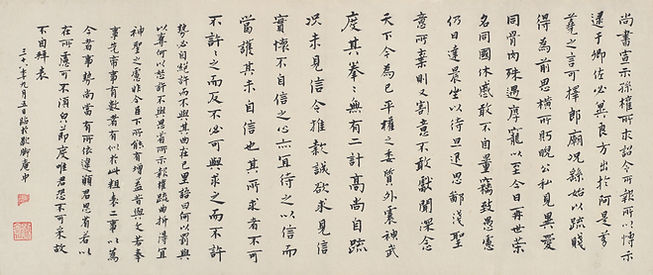 尚書宣示孫權所求詔令所報所以博示
逮于卿佐必冀良方出於阿是芻
蕘之言可擇郎廟況繇始以疏賤
得為前恩橫所盻睨公私見異愛
同骨肉殊遇厚寵以至今日再世榮
名同國休慼敢不自量竊致愚慮
仍日達晨坐以待旦退思鄙淺聖
意所棄則又割意不敢獻聞深念
天下今為已平權之委質外震神武
度其拳〻無有二計高尚自疏
況未見信今推款誠欲求見信
實懷不自信之心亦宜待之以信而
當護其未自信也其所求者不可
不許〻之而反不必可與求之而不許
勢必自絕許而不與其曲在己里語曰何以罰與
以奪何以怒許不與思省所示報權疏曲折得宜
神聖之慮非今臣下所能有增益昔與文若奉
事先帝事有數者有似於此粗表二事以為
今者事勢尚當有所依違願君思省若以
在所慮可不須節度唯君恐不可采故
不自拜表
三十六年九月五日臨於歇腳盦中